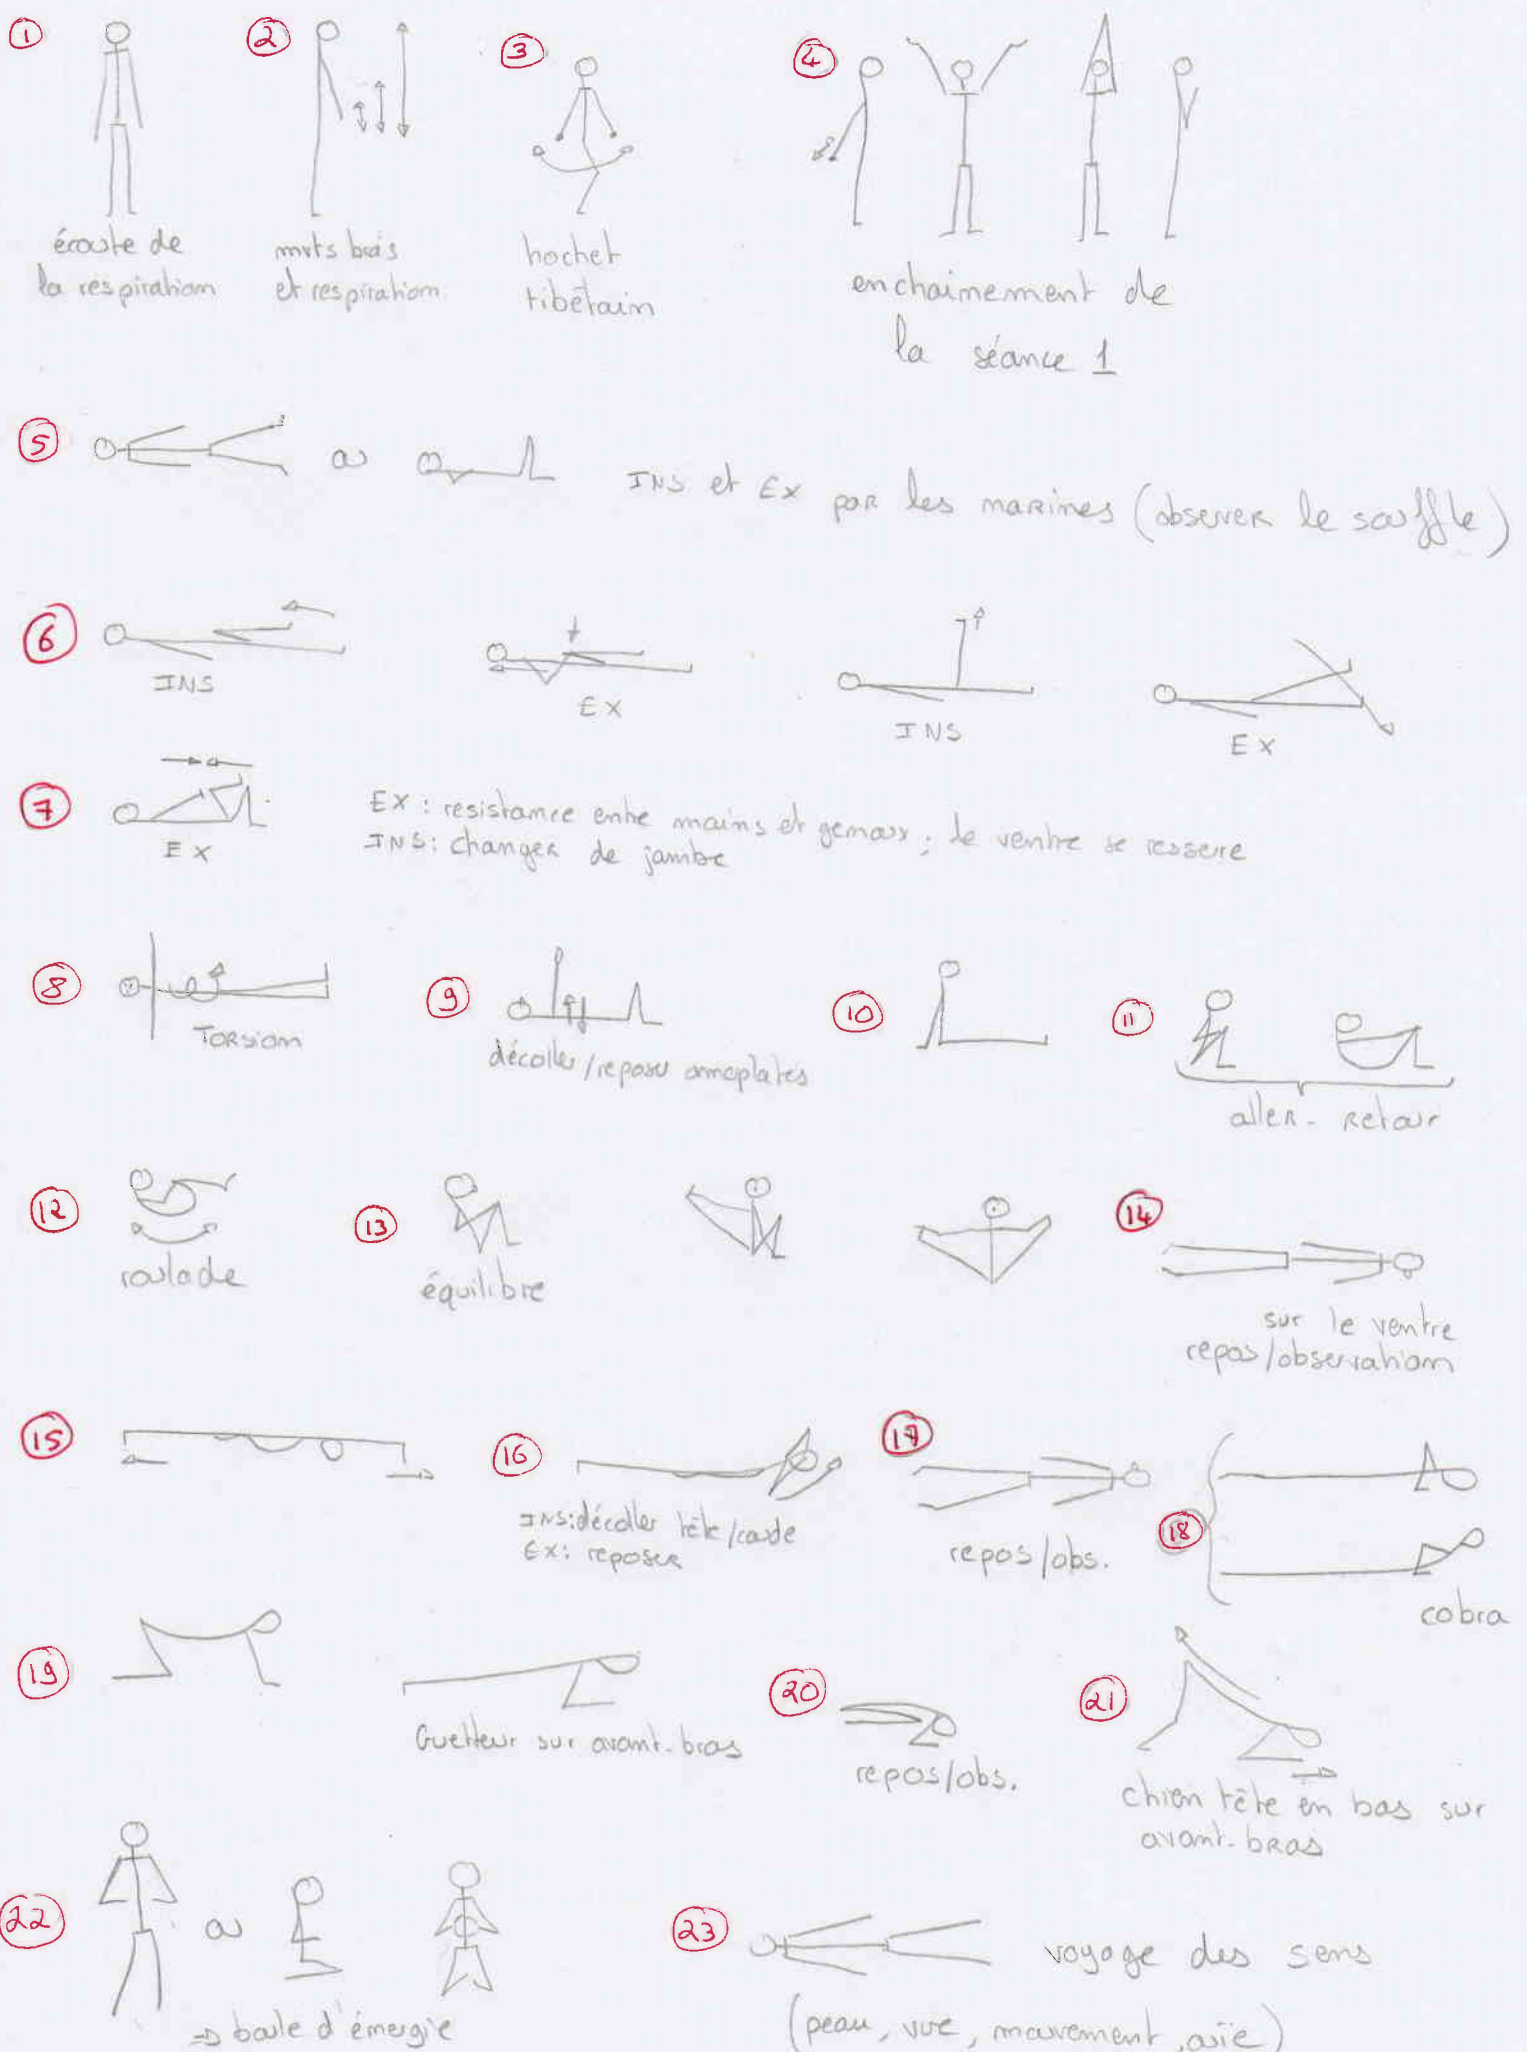 1
écoute de
la respiration
2
mvts bras
et respiration
3
hochet
tibétain
4
enchainement de
la séance 1
5
ou
INS et EX par les narines (observer le souffle)
6
INS
EX
INS
EX
7
EX
EX : resistance entre mains et genoux ; le ventre se resserre
INS : changer de jambe
8
TORSION
9
décoller/reposer omoplates
10
11
aller-retour
12
roulade
13
équilibre
14
sur le ventre
repos/observation
15
16
INS: décoller tête/coude
EX: reposer
17
repos/obs.
18
cobra
19
Guetteur sur avant-bras
20
repos/obs.
21
chien tête en bas sur
avant-bras
22
ou
⇒ boule d'énergie
23
voyage des sens
(peau, vue, mouvement, ouïe)